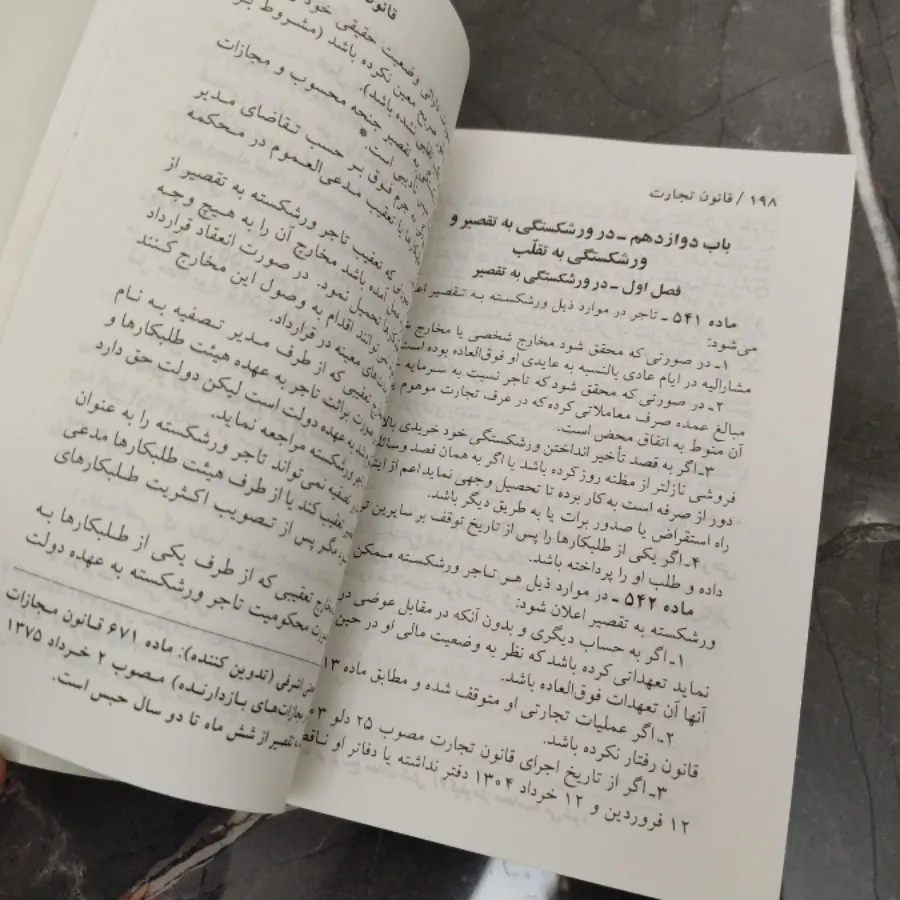 ۱۹۸ / قانون تجارت
باب دوازدهم ـ در ورشکستگی به تقصیر و
ورشکستگی به تقلّب
فصل اول ـ در ورشکستگی به تقصیر
ماده ۵۴۱ ـ تاجر در موارد ذیل ورشکسته به تقصیر
می‌شود:
۱ـ در صورتی که محقق شود مخارج شخصی یا مخارج
مشارالیه در ایام عادی بالنسبه به عایدی او فوق‌العاده بوده است
۲ـ در صورتی که محقق شود که تاجر نسبت به سرمایه
مبالغ عمده صرف معاملاتی کرده که در عرف تجارت موهوم
آن منوط به اتفاق محض است.
۳ـ اگر به قصد تأخیر انداختن ورشکستگی خود خریدی بالا
فروشی نازلتر از مظنه روز کرده باشد یا اگر به همان قصد وسائل
دور از صرفه است به کار برده تا تحصیل وجهی نماید اعم از
راه استقراض یا صدور برات یا به طریق دیگر باشد.
۴ـ اگر یکی از طلبکارها را پس از تاریخ توقف بر سایرین
داده و طلب او را پرداخته باشد.
ماده ۵۴۲ ـ در موارد ذیل هر تاجر ورشکسته ممکن
ورشکسته به تقصیر اعلان شود:
۱ـ اگر به حساب دیگری و بدون آنکه در مقابل عوضی در
نماید تعهداتی کرده باشد که نظر به وضعیت مالی او در حین
آنها آن تعهدات فوق‌العاده باشد.
۲ـ اگر عملیات تجارتی او متوقف شده و مطابق ماده ۱۳
قانون رفتار نکرده باشد.
۳ـ اگر از تاریخ اجرای قانون تجارت مصوب ۲۵ دلو
۱۲ فروردین و ۱۲ خرداد ۱۳۰۴ دفتر نداشته یا دفاتر او
قانون
دارائی وضعیت حقیقی خود
صریح معین نکرده باشد (مشروط
نشده باشد).
به تقصیر جنحه محسوب و مجازات
تأدیبی است.*
به جرم فوق بر حسب تقاضای مدیر
یا تعقیب مدعی‌العموم در محکمه
که تعقیب تاجر ورشکسته به تقصیر از
عمل آمده باشد مخارج آن را به هیچ وجه
تحمیل نمود. در صورت انعقاد قرارداد
نمی‌توانند اقدام به وصول این مخارج کنند
معینه در قرارداد.
تعقیبی که از طرف مدیر تصفیه به نام
صورت برائت تاجر به عهده هیئت طلبکارها و
به عهده دولت است لیکن دولت حق دارد
ورشکسته مراجعه نماید.
تصفیه نمی‌تواند تاجر ورشکسته را به عنوان
تعقیب کند یا از طرف هیئت طلبکارها مدعی
مگر پس از تصویب اکثریت طلبکارهای
تعقیبی که از طرف یکی از طلبکارها به
محکومیت تاجر ورشکسته به عهده دولت
اشرفی (تدوین کننده): ماده ۶۷۱ قانون مجازات
مجازات‌های بازدارنده) مصوب ۲ خرداد ۱۳۷۵
تقصیر از شش ماه تا دو سال حبس است.